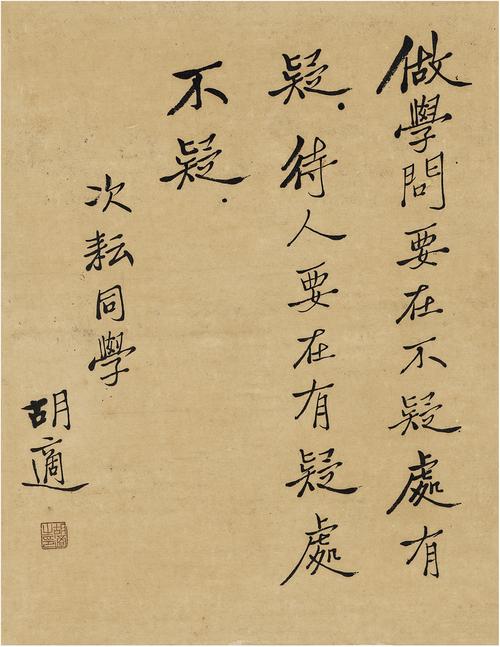 做學問要在不疑處有
疑．待人要在有疑處
不疑．
次耘同學
胡適
胡適之印